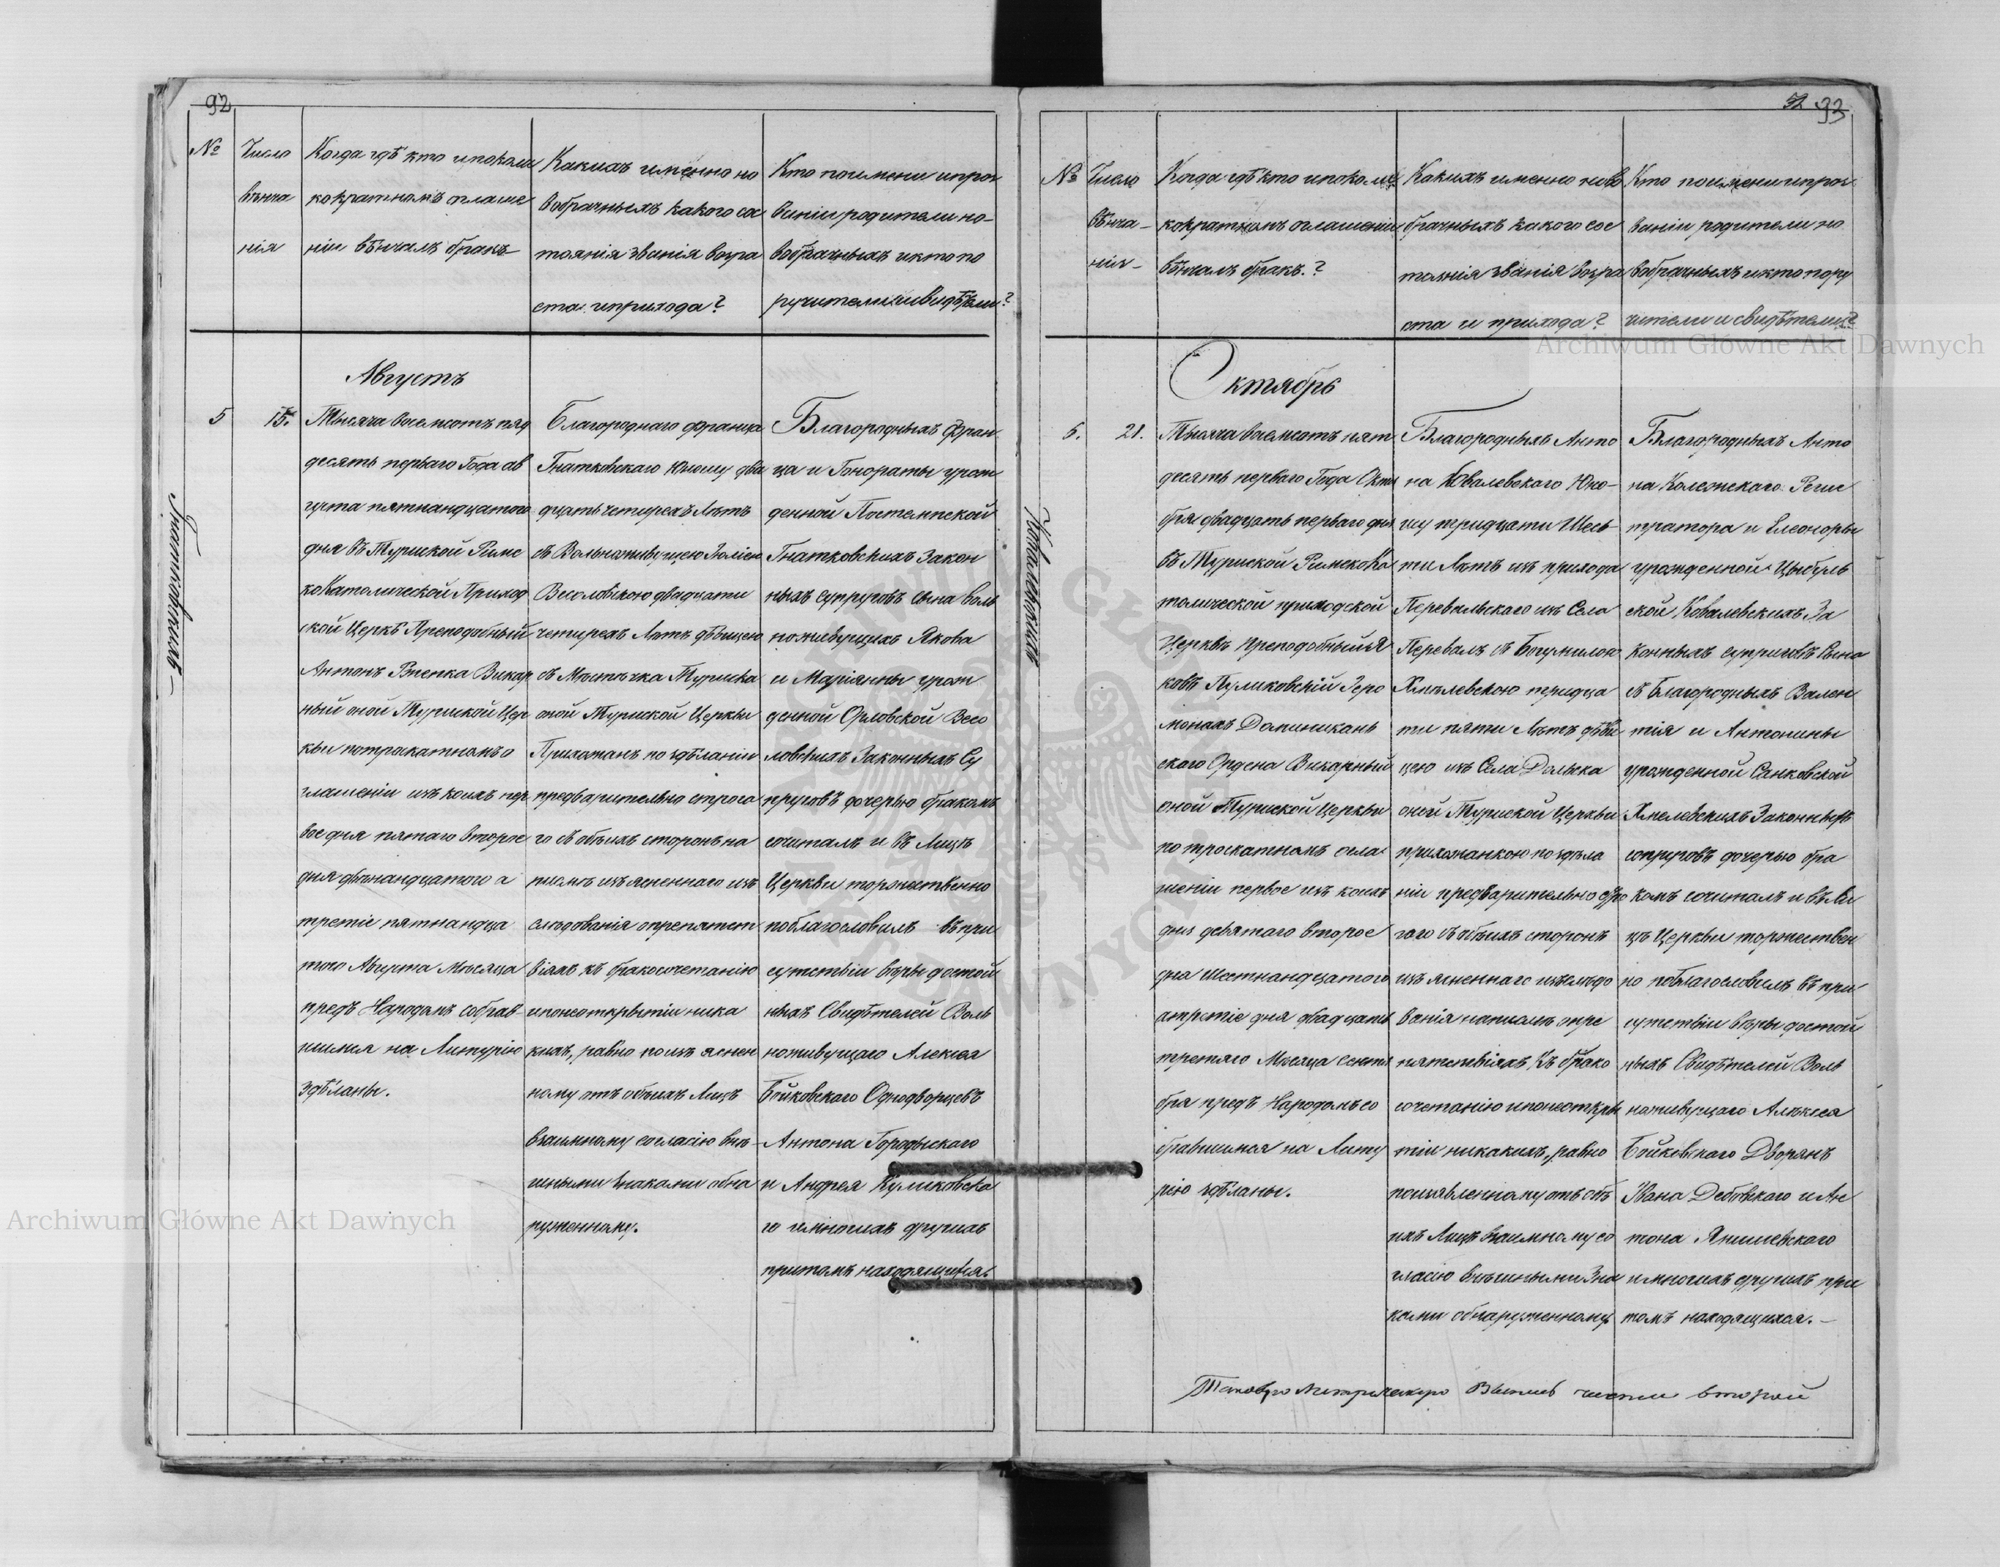 92
№
Число
вѣнча
нія
Когда гдѣ кто и по коли
кократномъ оглаше
ніи вѣнчалъ бракъ
Какихъ именно но
вобрачныхъ какого со
стоянія званія возра
ста и прихода?
Кто по имени и проз
ваніи родители но-
вобрачныхъ и кто по
ручители и свидѣтели?
Августъ
Гнатковскихъ
5
15.
Тысяча восемсотъ пяд
десять перваго Года ав
густа пятнандцатого
дня въ Турийской Риме
кокатолической Приход
ской Церкѣ Преподобный
Антонъ Рпепка Викар
ный оной Турийской Цер
кви по трократномъ о
глашеніи изъ коихъ пер
вое дня пятаго второе
дня двѣнандцатого а
третіе пятнандца
того Августа Мѣсяца
предъ Народомъ собрав-
шимся на Литургію
здѣланы.
Благороднаго Франца
Гнатковского Юношу два
дцать четырехъ Лѣтъ
съ Вольноживущею Юліею
Весоловскою двадцати
четырехъ Лѣтъ дѣвицею
съ Мѣстечка Турийска
оной Турийской Церкви
Прихожанъ по здѣланіи
предварительно строго
го съ обѣихъ сторонъ на
письмѣ изъясненнаго изъ
слѣдованія о препятст
віяхъ къ бракосочетанію
и по неоткрытіи ника
кихъ, равно по изъяснен
ному отъ обѣихъ Лицъ
взаимному согласію внѣ-
шными знаками обна
руженному.
Благородныхъ Фран
ца и Гонораты урож
денной Постемпской
Гнатковскихъ Закон
ныхъ супруговъ сына воль
ноживущихъ Якова
и Маріянны урож
денной Орловской Весо
ловскихъ Законныхъ Су
пруговъ дочерью бракомъ
сочиталъ и въ Лицѣ
Церкви торжественно
поблагословилъ въ при
сутствіи вѣры достой
ныхъ Свидѣтелей Воль
ноживущаго Алексея
Бойковского Однодворцевъ
Антона Городыского
и Андрея Куликовска
го и многихъ другихъ
притомъ находящихся.
52 93
№
Число
вѣнча-
нія-
Когда гдѣ кто и по коли
кократномъ оглашеніи
вѣнчалъ бракъ?
Какихъ именно ново
брачныхъ какого сос
тоянія званія возра
ста и прихода?
Кто по имени и проз
ваніи родители но
вобрачныхъ и кто пору
чители и свидѣтели?
Октябрь
Ковалевскихъ
6.
21.
Тысяча восемсотъ пят
десять перваго Года Октя
бря двадцать перваго дня
въ Турийской Римскока
толической приходской
Церквѣ Преподобный Я
ковъ Пуликовскій Іеро
монахъ Доминикань
ского Ордена Викарный
оной Турийской Церкви
по троскатномъ огла
шеніи первое изъ коихъ
дня девятаго второе
дня Шестнандцатого
а третіе дня двадцать
третяго Мѣсяца Сентя
бря предъ Народомъ со
бравшимся на Литу
ргію здѣланы.
Благородныхъ Анто
на Ковалевского Юно-
шу тридцати Шесь-
ти Лѣтъ изъ прихода
Перевальского изъ Села
Перевалъ съ Богумилою
Хмѣлевскою тридца
ти пяти Лѣтъ дѣви
цею изъ Села Дольска
оной Турийской Церкви
прихожанкою по здѣла
ніи предварительно стро
гого съ обѣихъ сторонъ
изъясненнаго изслѣдо
ванія на письмѣ о пре
пятствіяхъ къ брако
сочетанію и по неоткры
тіи никакихъ, равно
по изъявленному отъ обѣ
ихъ Лицъ взаимному со
гласію внѣшными Зна
ками обнаруженному
Благородныхъ Анто
на Колежского Регис
тратора и Елеоноры
урожденной Цыбуль
ской Ковалевскихъ За
конныхъ супруговъ Сына
съ Благородныхъ Вален
тія и Антонины
урожденной Санковской
Хмелевскихъ Законныхъ
супруговъ дочерью бра
комъ сочиталъ и въ Ли
цѣ Церкви торжествен
но поблагословилъ въ при
сутствіи вѣры достой
ныхъ Свидѣтелей Воль
ноживущаго Алексея
Бойковского Дворянъ
Ивана Дебовского и Ан
тона Янишевского
и многихъ другихъ при
томъ находящихся.-
Таковую Метрическую Выпись части второй
Archiwum Główne Akt Dawnych
Archiwum Główne Akt Dawnych